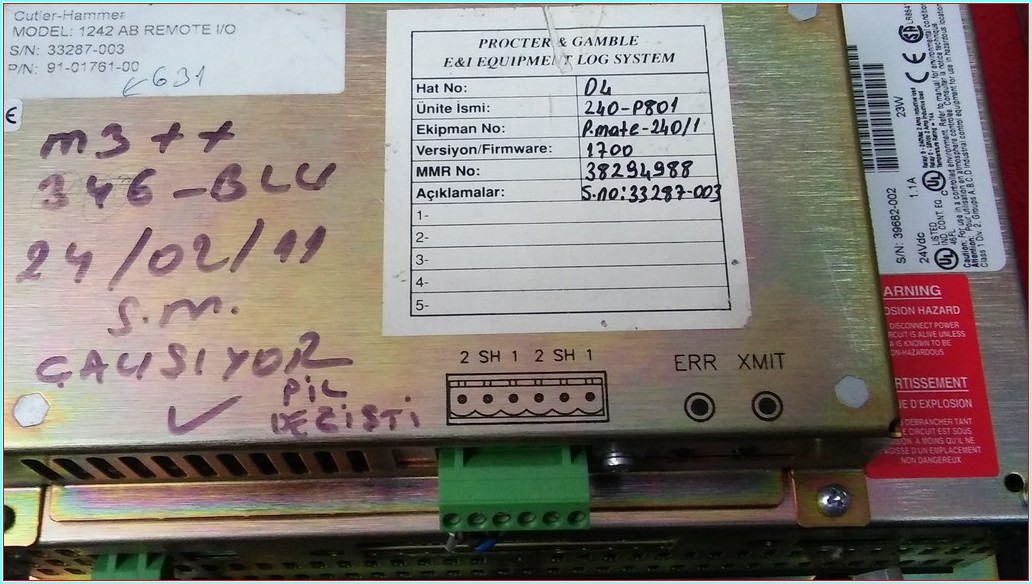 Cutler-Hammer
MODEL: 1242 AB REMOTE I/O
S/N: 33287-003
P/N: 91-01761-00
631
CE
m3 ++
346-BLU
24/02/11
S.M.
ÇALISIYOR
PİL
DEĞİŞTİ
PROCTER & GAMBLE
E&I EQUIPMENT LOG SYSTEM
Hat No: 04
Ünite İsmi: 240-P801
Ekipman No: P.mate-240/1
Versiyon/Firmware: 1700
MMR No: 38294988
Açıklamalar: S.no:33287-003
1-
2-
3-
4-
5-
2 SH 1 2 SH 1
ERR XMIT
S/N: 39682-002
23W
24Vdc 1.1A
LISTED
IND. CONT. EQ.
46FL
Class 1 Div. 2. Groups A.B.C.D industrial control equipment
ARNING
OSION HAZARD
DISCONNECT POWER
RCUIT IS ALIVE UNLESS
A IS KNOWN TO BE
ON-HAZARDOUS
RTISSEMENT
UE D'EXPLOSION
DEBRANCHER TANT
E CIRCUIT EST SOUS
SION, A MOINS QU'IL NE
SE D'UN EMPLACEMENT
NON DANGEREUX